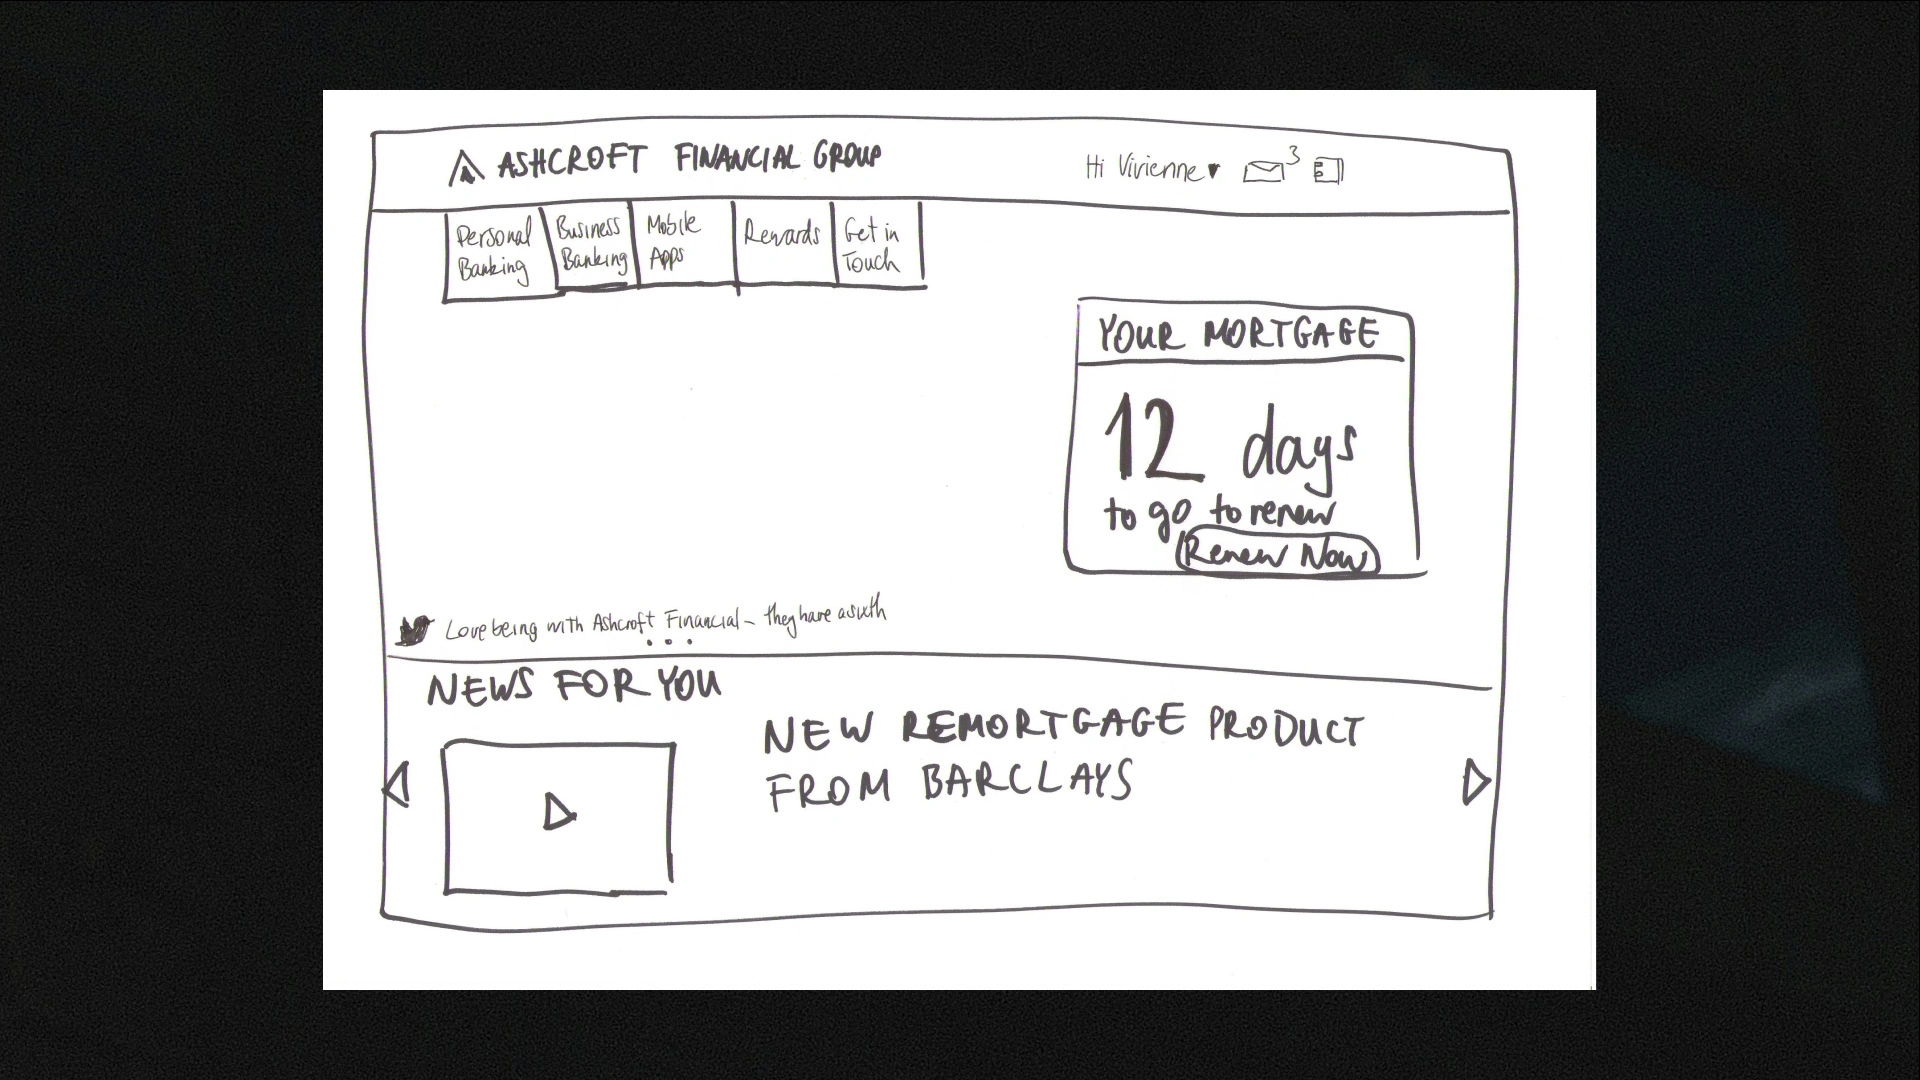 ASHCROFT FINANCIAL GROUP
Hi Vivienne
3
Personal
Banking
Business
Banking
Mobile
Apps
Rewards
Get in
Touch
YOUR MORTGAGE
12 days
to go to renew
Renew Now
Love being with Ashcroft Financial - they have a
NEWS FOR YOU
NEW REMORTGAGE PRODUCT
FROM BARCLAYS